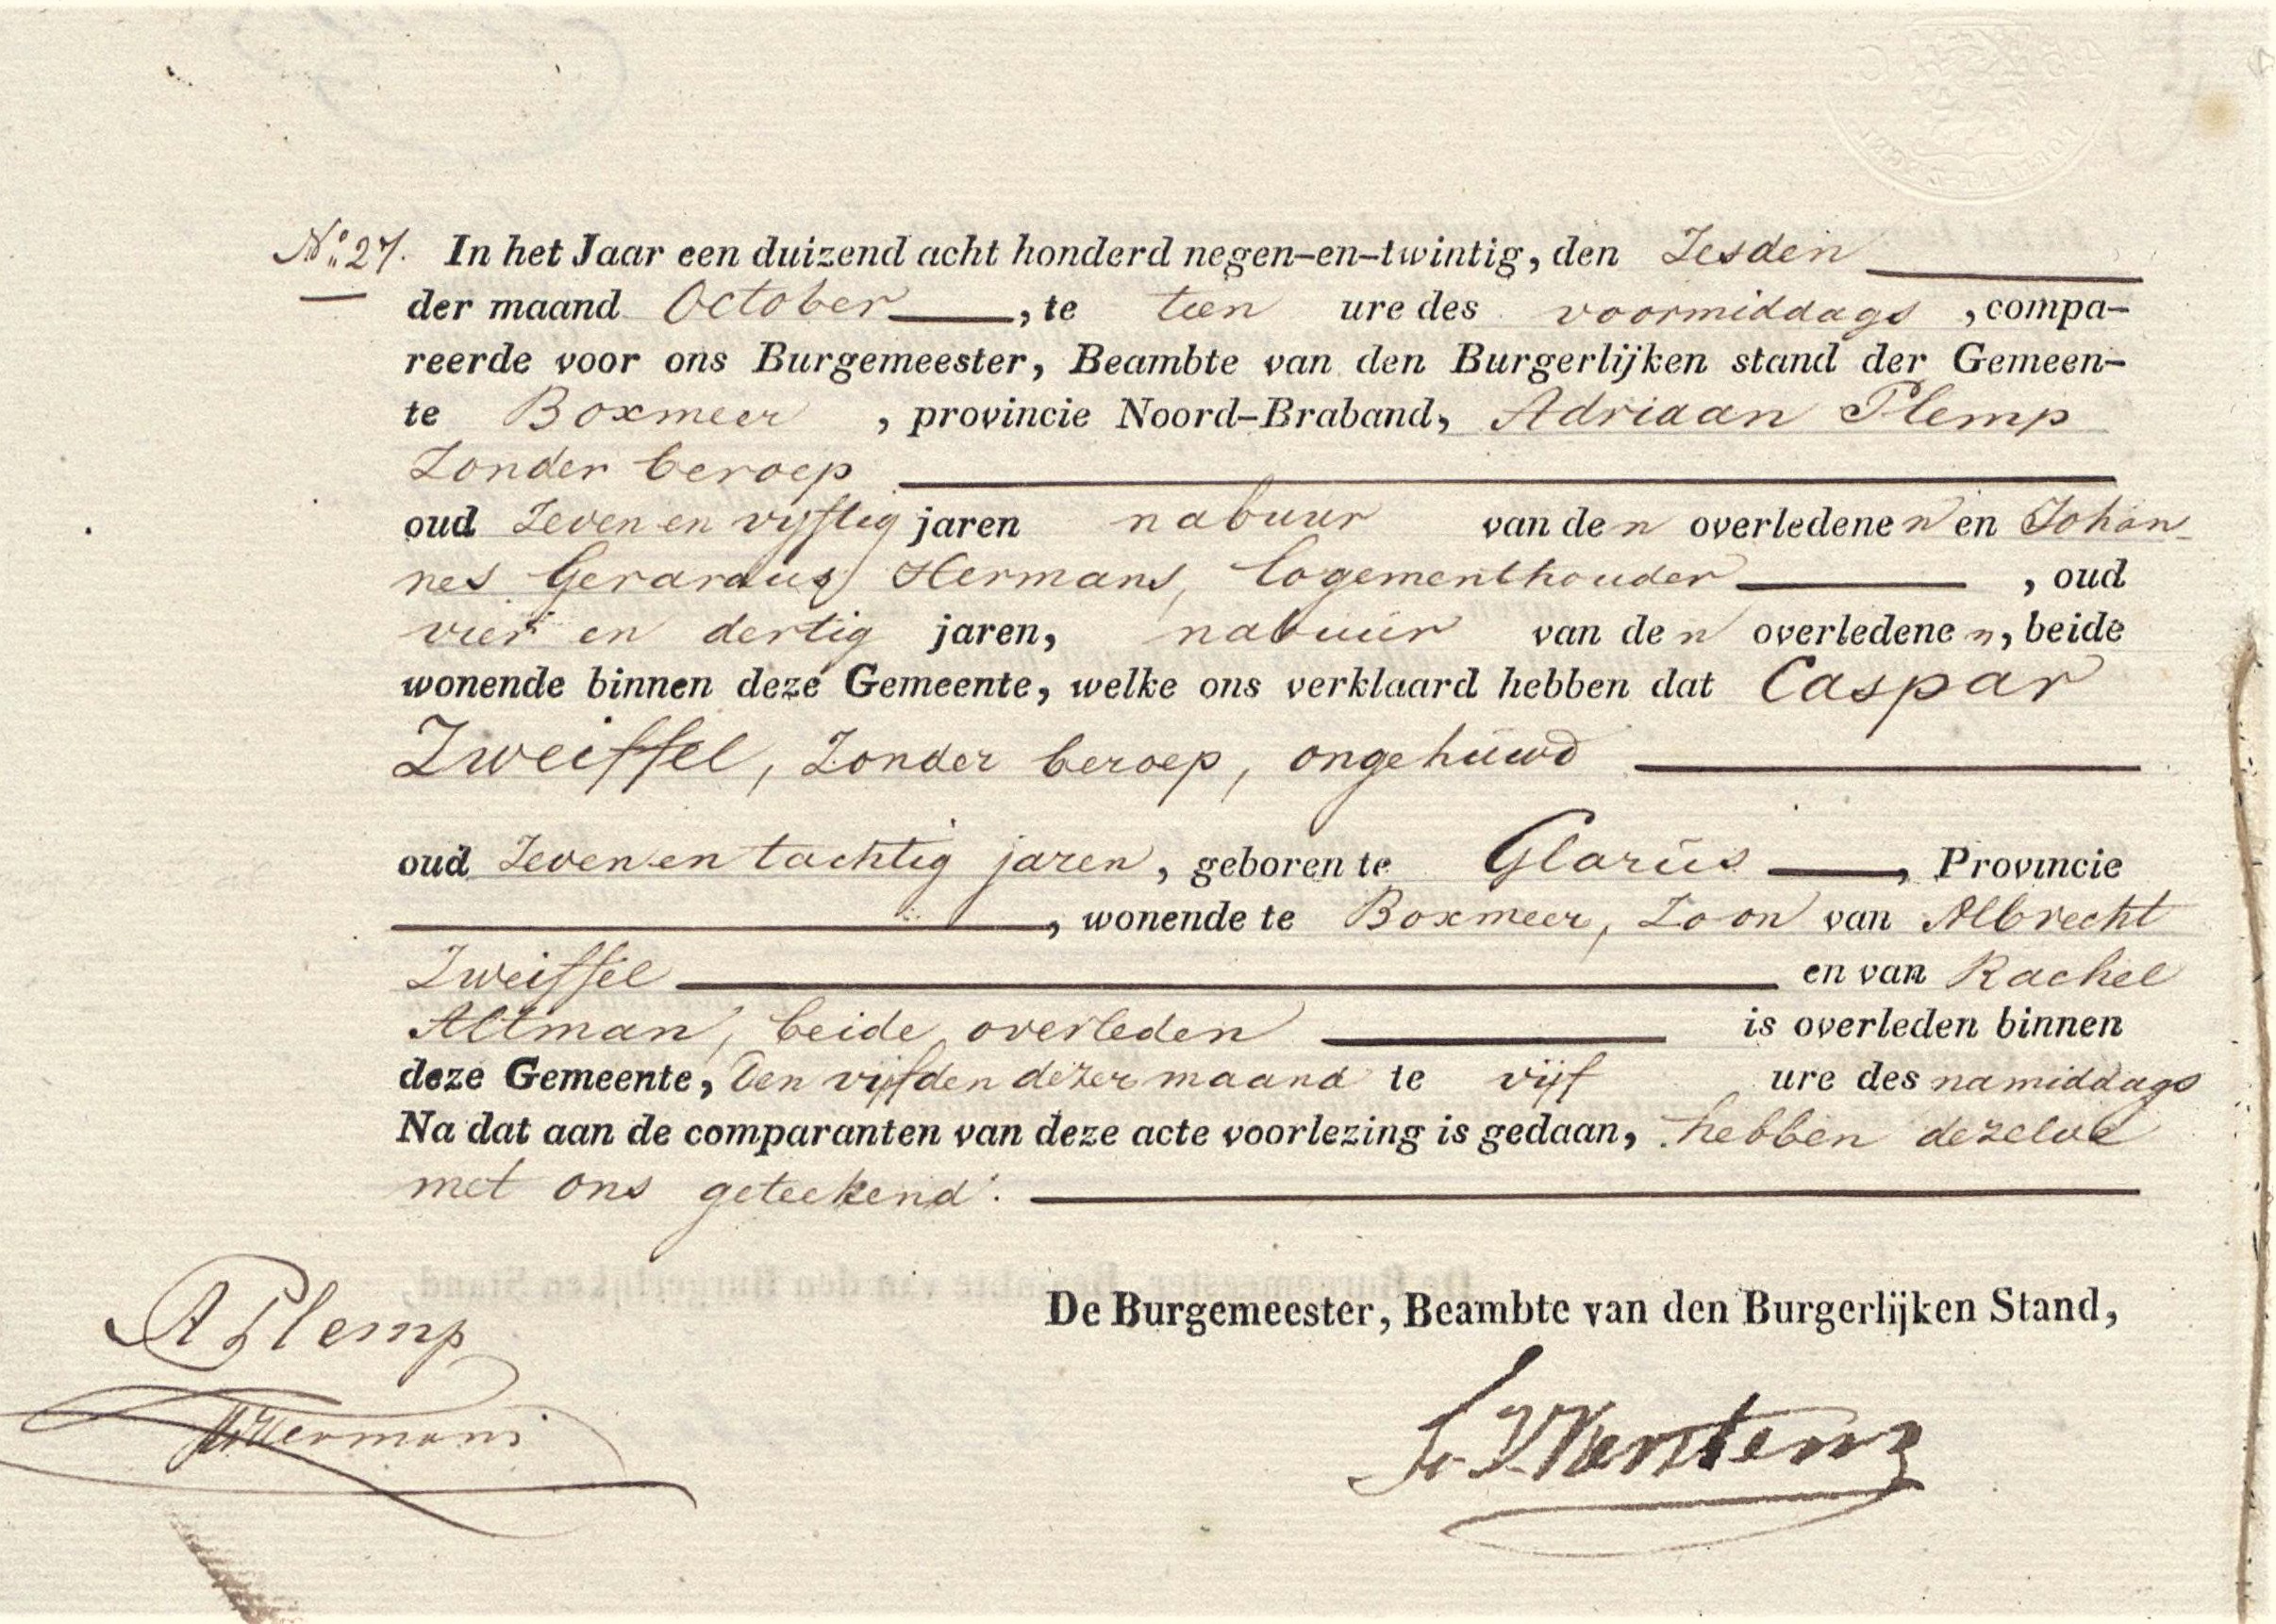 No. 27. In het Jaar een duizend acht honderd negen-en-twintig, den Zesden
der maand October, te tien ure des voormiddags, compa-
reerde voor ons Burgemeester, Beambte van den Burgerlijken stand der Gemeen-
te Boxmeer, provincie Noord-Braband, Adriaan Plemp
Zonder beroep
oud Zeven en vyftig jaren nabuur van den overledenen en Johan-
nes Gerardus Hermans, logementhouder, oud
vier en dertig jaren, nabuur van den overledenen, beide
wonende binnen deze Gemeente, welke ons verklaard hebben dat Caspar
Zweiffel, Zonder beroep, ongehuwd
oud Zeven en tachtig jaren, geboren te Glarus, Provincie
, wonende te Boxmeer, Zoon van Albrecht
Zweiffel en van Rachel
Altman, beide overleden is overleden binnen
deze Gemeente, den vijfden dezer maand te vijf ure des namiddags
Na dat aan de comparanten van deze acte voorlezing is gedaan, hebben dezelve
met ons geteekend.
De Burgemeester, Beambte van den Burgerlijken Stand,
A Plemp
Hermans